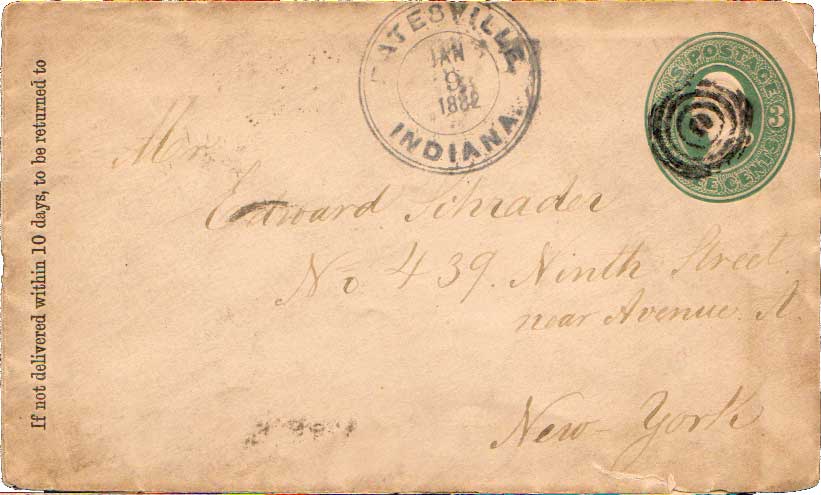 If not delivered within 10 days, to be returned to
BATESVILLE
JAN
9
1882
INDIANA
U.S. POSTAGE
3
THREE CENTS
Mr
Edward Schrader
No 439. Ninth Street.
near Avenue A.
New-York